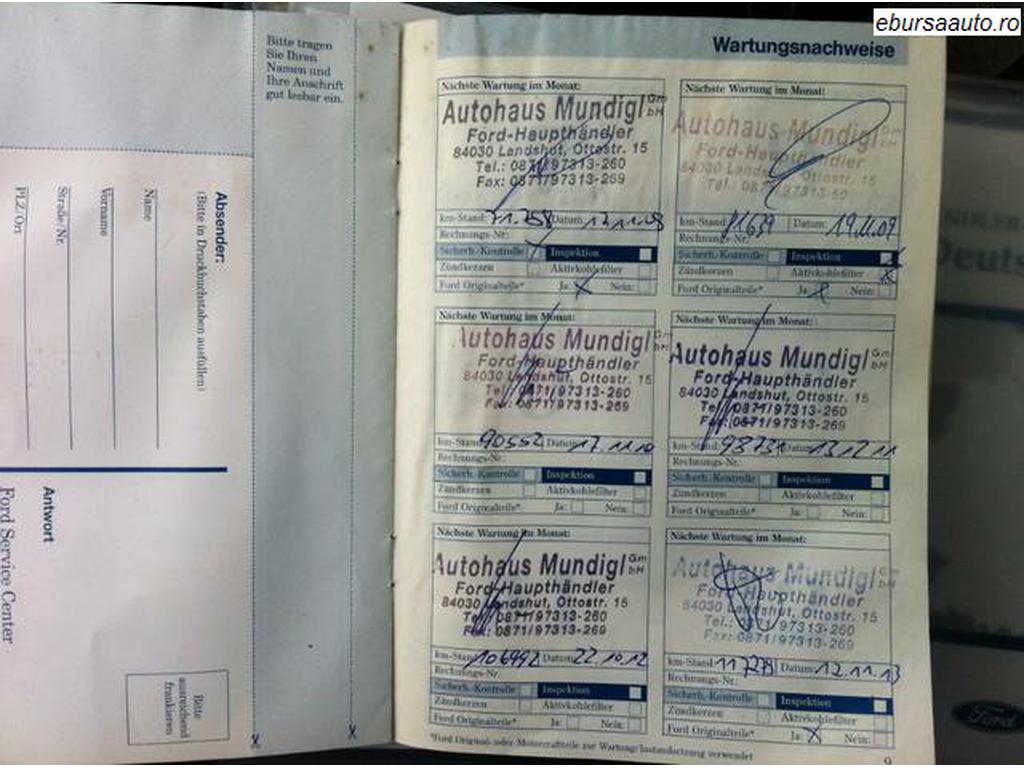 ebursaauto.ro
Bitte tragen
Sie Ihren
Namen und
Ihre Anschrift
gut lesbar ein.
Absender:
(Bitte in Druckbuchstaben ausfüllen)
Name
Vorname
Straße/Nr.
PLZ/Ort
Antwort
Ford Service Center
Bitte
ausreichend
frankieren
Wartungsnachweise
Nächste Wartung im Monat:
Autohaus Mundigl GmbH
Ford-Haupthändler
84030 Landshut, Ottostr. 15
Tel.: 0871/97313-260
Fax: 0871/97313-269
km-Stand: 71.258 Datum: 12.11.08
Rechnungs-Nr.:
Sicherh.-Kontrolle Inspektion
Zündkerzen Aktivkohlefilter
Ford Originalteile* Ja: Nein:
Nächste Wartung im Monat:
Autohaus Mundigl GmbH
Ford-Haupthändler
84030 Landshut, Ottostr. 15
Tel.:
km-Stand: 81639 Datum: 19.11.09
Rechnungs-Nr.:
Sicherh.-Kontrolle Inspektion
Zündkerzen Aktivkohlefilter
Ford Originalteile* Ja: Nein:
Nächste Wartung im Monat:
Autohaus Mundigl GmbH
Ford-Haupthändler
84030 Landshut, Ottostr. 15
Tel.: 0871/97313-260
Fax: 0871/97313-269
km-Stand: 90552 Datum: 17.11.10
Rechnungs-Nr.:
Sicherh.-Kontrolle Inspektion
Zündkerzen Aktivkohlefilter
Ford Originalteile* Ja: Nein:
Nächste Wartung im Monat:
Autohaus Mundigl GmbH
Ford-Haupthändler
84030 Landshut, Ottostr. 15
Tel.: 0871/97313-260
Fax: 0871/97313-269
km-Stand: Datum: 13.12.11
Rechnungs-Nr.
Sicherh.-Kontrolle Inspektion
Zündkerzen Aktivkohlefilter
Ford Originalteile* Ja: Nein:
Nächste Wartung im Monat:
Autohaus Mundigl GmbH
Ford-Haupthändler
84030 Landshut, Ottostr. 15
Tel.: 0871/97313-260
Fax: 0871/97313-269
km-Stand: 106992 Datum: 22.10.12
Rechnungs-Nr.
Sicherh.-Kontrolle Inspektion
Zündkerzen Aktivkohlefilter
Ford Originalteile* Ja: Nein:
Nächste Wartung im Monat:
Autohaus Mundigl GmbH
Ford-Haupthändler
84030 Landshut, Ottostr. 15
Tel.: 0871/97313-260
Fax: 0871/97313-269
km-Stand: 117279 Datum: 12.11.13
Rechnungs-Nr.
Sicherh.-Kontrolle Inspektion
Zündkerzen Aktivkohlefilter
Ford Originalteile* Ja: Nein:
*Ford Original- oder Motorcraftteile zur Wartung/Instandsetzung verwendet
9
Ford